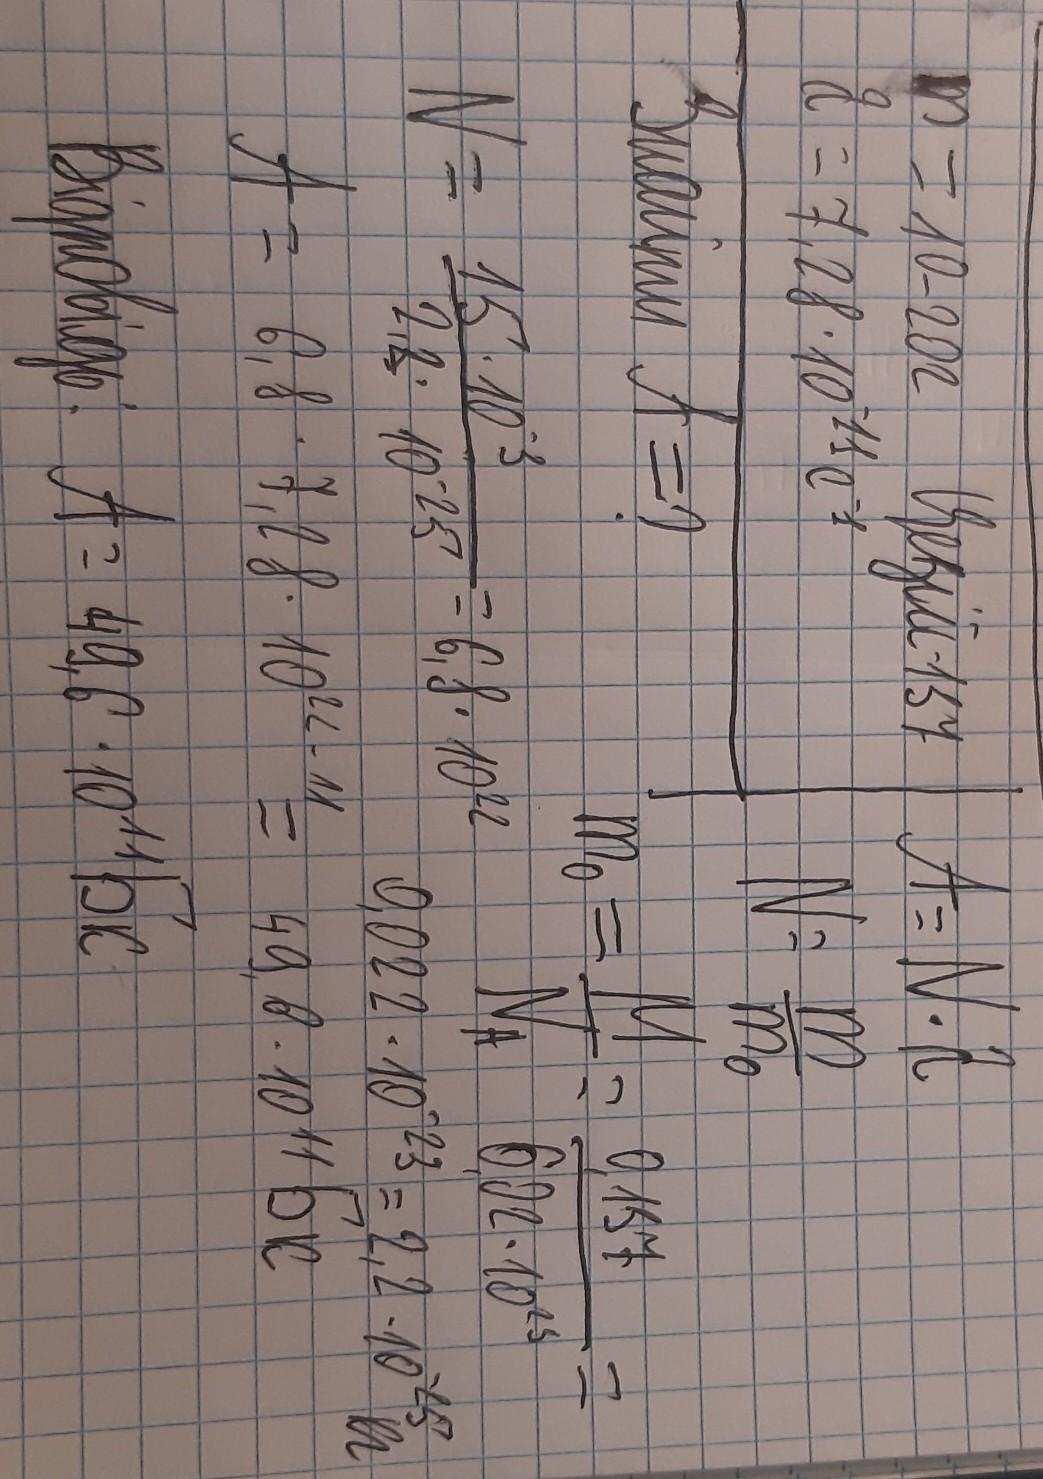 m = 10-20г Цезій-137
λ = 7,28·10⁻¹¹ с⁻¹
Знайти A = ?
A = N·λ
N = m/m₀
m₀ = M/N_A = 0,137/6,02·10²³ =
0,022·10⁻²³ = 2,2·10⁻²⁵
N = 15·10⁻³/2,2·10⁻²⁵ = 6,8·10²²
A = 6,8·7,28·10²²⁻¹¹ = 49,6·10¹¹ Бк
Відповідь: A = 49,6·10¹¹ Бк